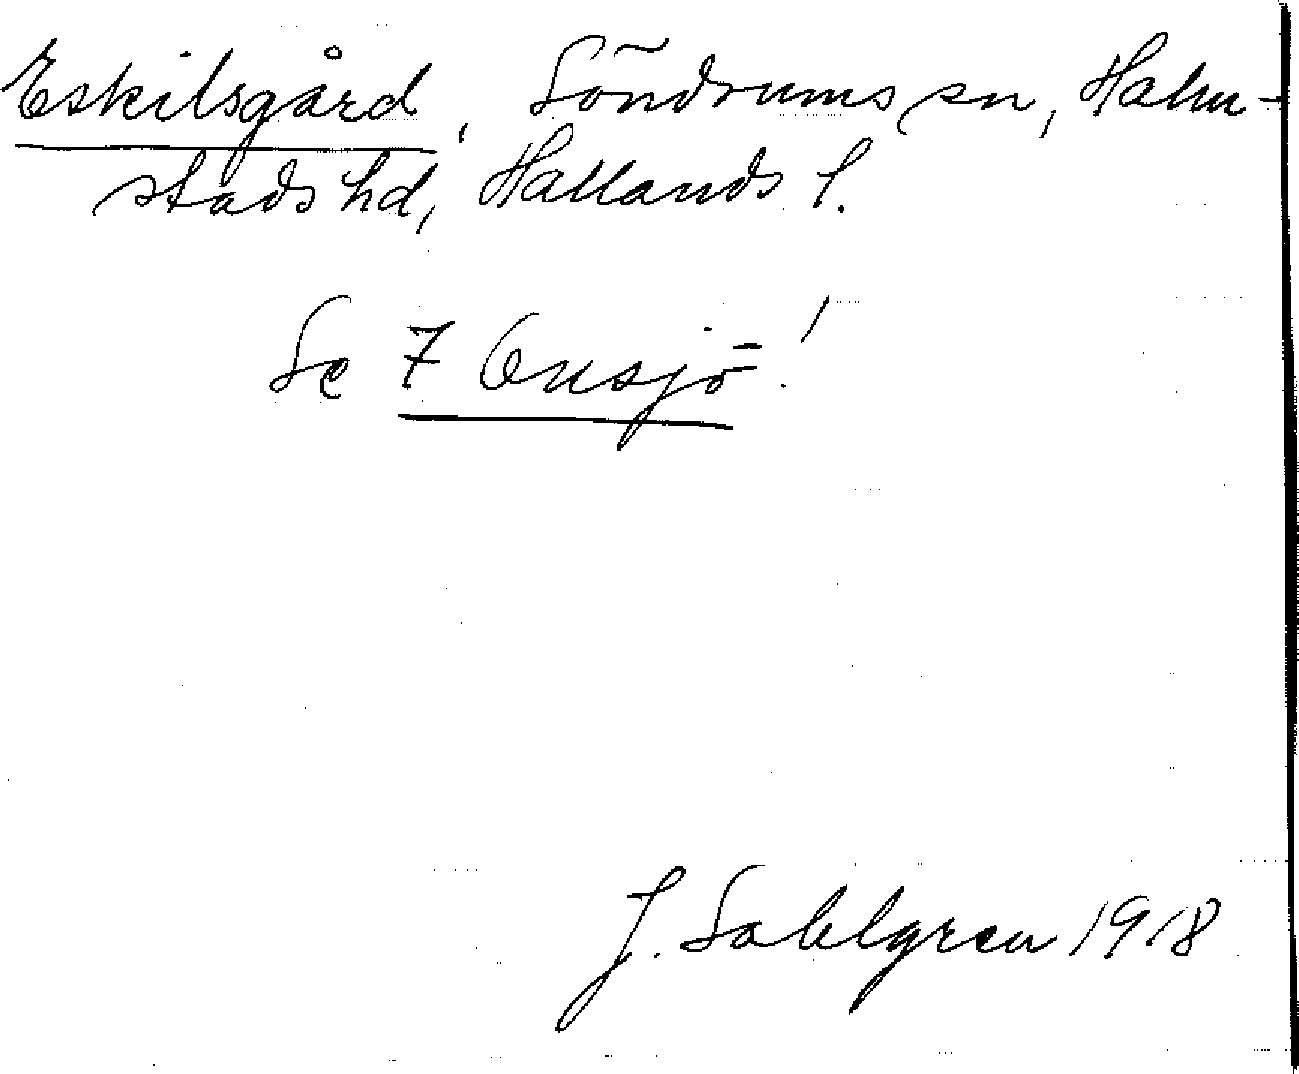 Eskilsgård, Söndrums sn, Halm-
stads hd, Hallands l.
Se 7 Onsjö!
J. Sahlgren 1918